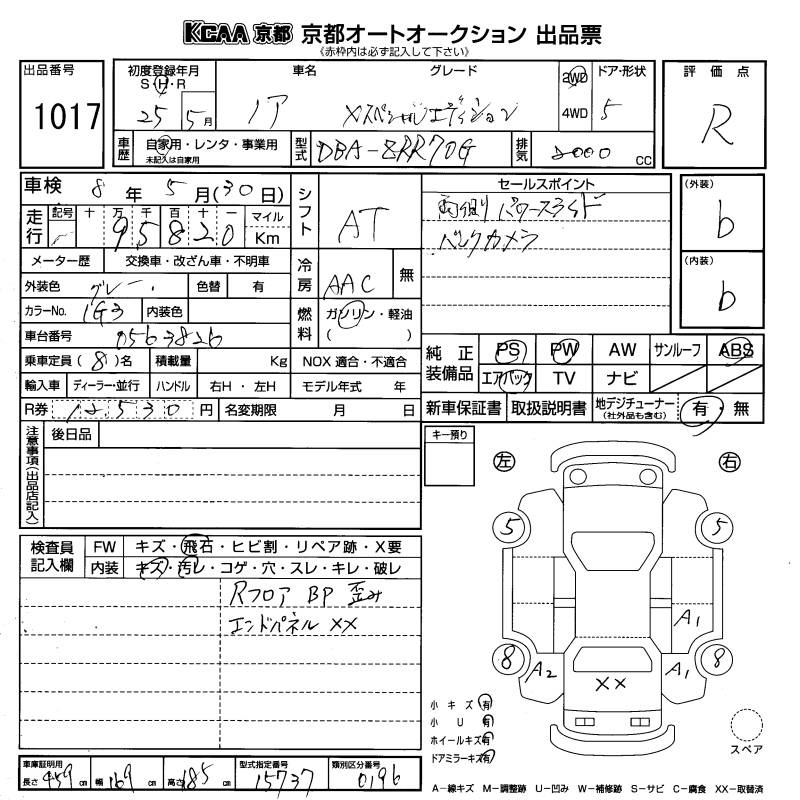 KCAA 京都 京都オートオークション 出品票
《赤枠内は必ず記入して下さい》
出品番号 1017
初度登録年月 S・H・R 25年 5月
車名 ノア
グレード Xスペシャルエディション
2WD 4WD
ドア・形状 5
評価点 R
車歴 自家用・レンタ・事業用
未記入は自家用
型式 DBA-ZRR70G
排気 2000 cc
車検 8年 5月(30日)
シフト AT
セールスポイント
両側パワースライド
バックカメラ
(外装) b
(内装) b
走行 記号 十 万 千 百 十 一 マイル Km
95820
メーター歴 交換車・改ざん車・不明車
冷房 AAC 無
外装色 グレー 色替 有
カラーNo. 1G3 内装色
燃料 ガソリン・軽油 ( )
車台番号 0563826
純正装備品 PS PW AW サンルーフ ABS
エアバック TV ナビ
乗車定員(8)名 積載量 Kg NOX 適合・不適合
輸入車 ディーラー・並行 ハンドル 右H・左H モデル年式 年
R券 12,530円 名変期限 月 日
新車保証書 取扱説明書 地デジチューナー (社外品も含む) 有・無
注意事項(出品店記入) 後日品
キー預り
左 右
5 5
検査員記入欄 FW キズ・飛石・ヒビ割・リペア跡・X要
内装 キズ・汚レ・コゲ・穴・スレ・キレ・破レ
Rフロア BP 歪み
エンドパネル XX
A1
8 A2 A1 8
XX
小キズ 有
小U 有
ホイールキズ 有
ドアミラーキズ 有
スペア
車庫証明用 長さ 459cm 幅 169cm 高さ 185cm
型式指定番号 15737
類別区分番号 0196
A-線キズ M-調整跡 U-凹み W-補修跡 S-サビ C-腐食 XX-取替済